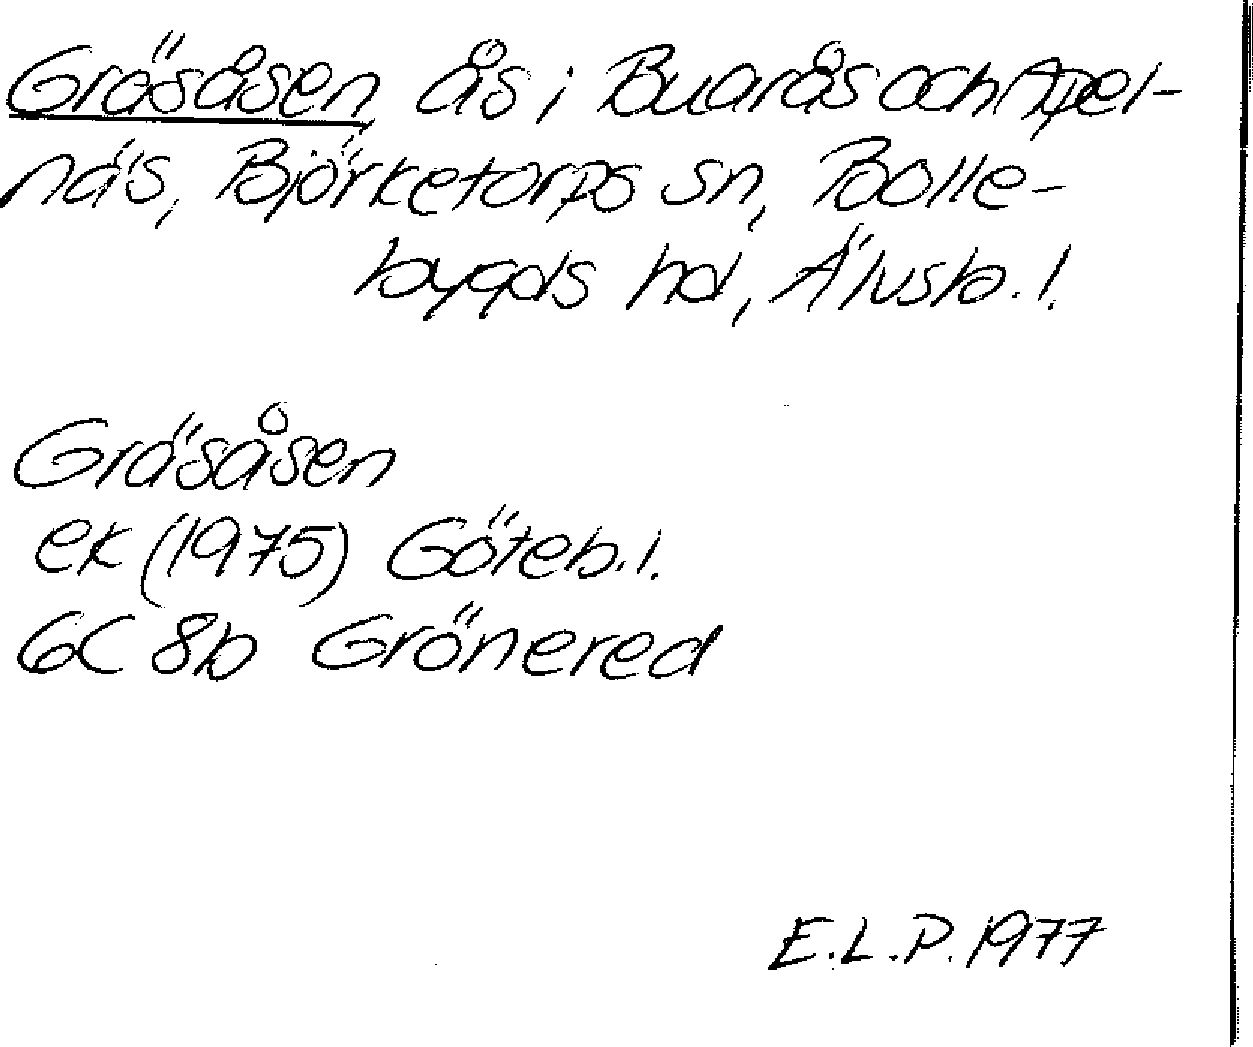 Gräsåsen, ås i Buarås och Apel-
näs, Björketorps sn, Bolle-
bygds hd, Älvsb. l.
Gräsåsen
ek (1975) Göteb. l.
6C 8b Grönered
E.L.P. 1977